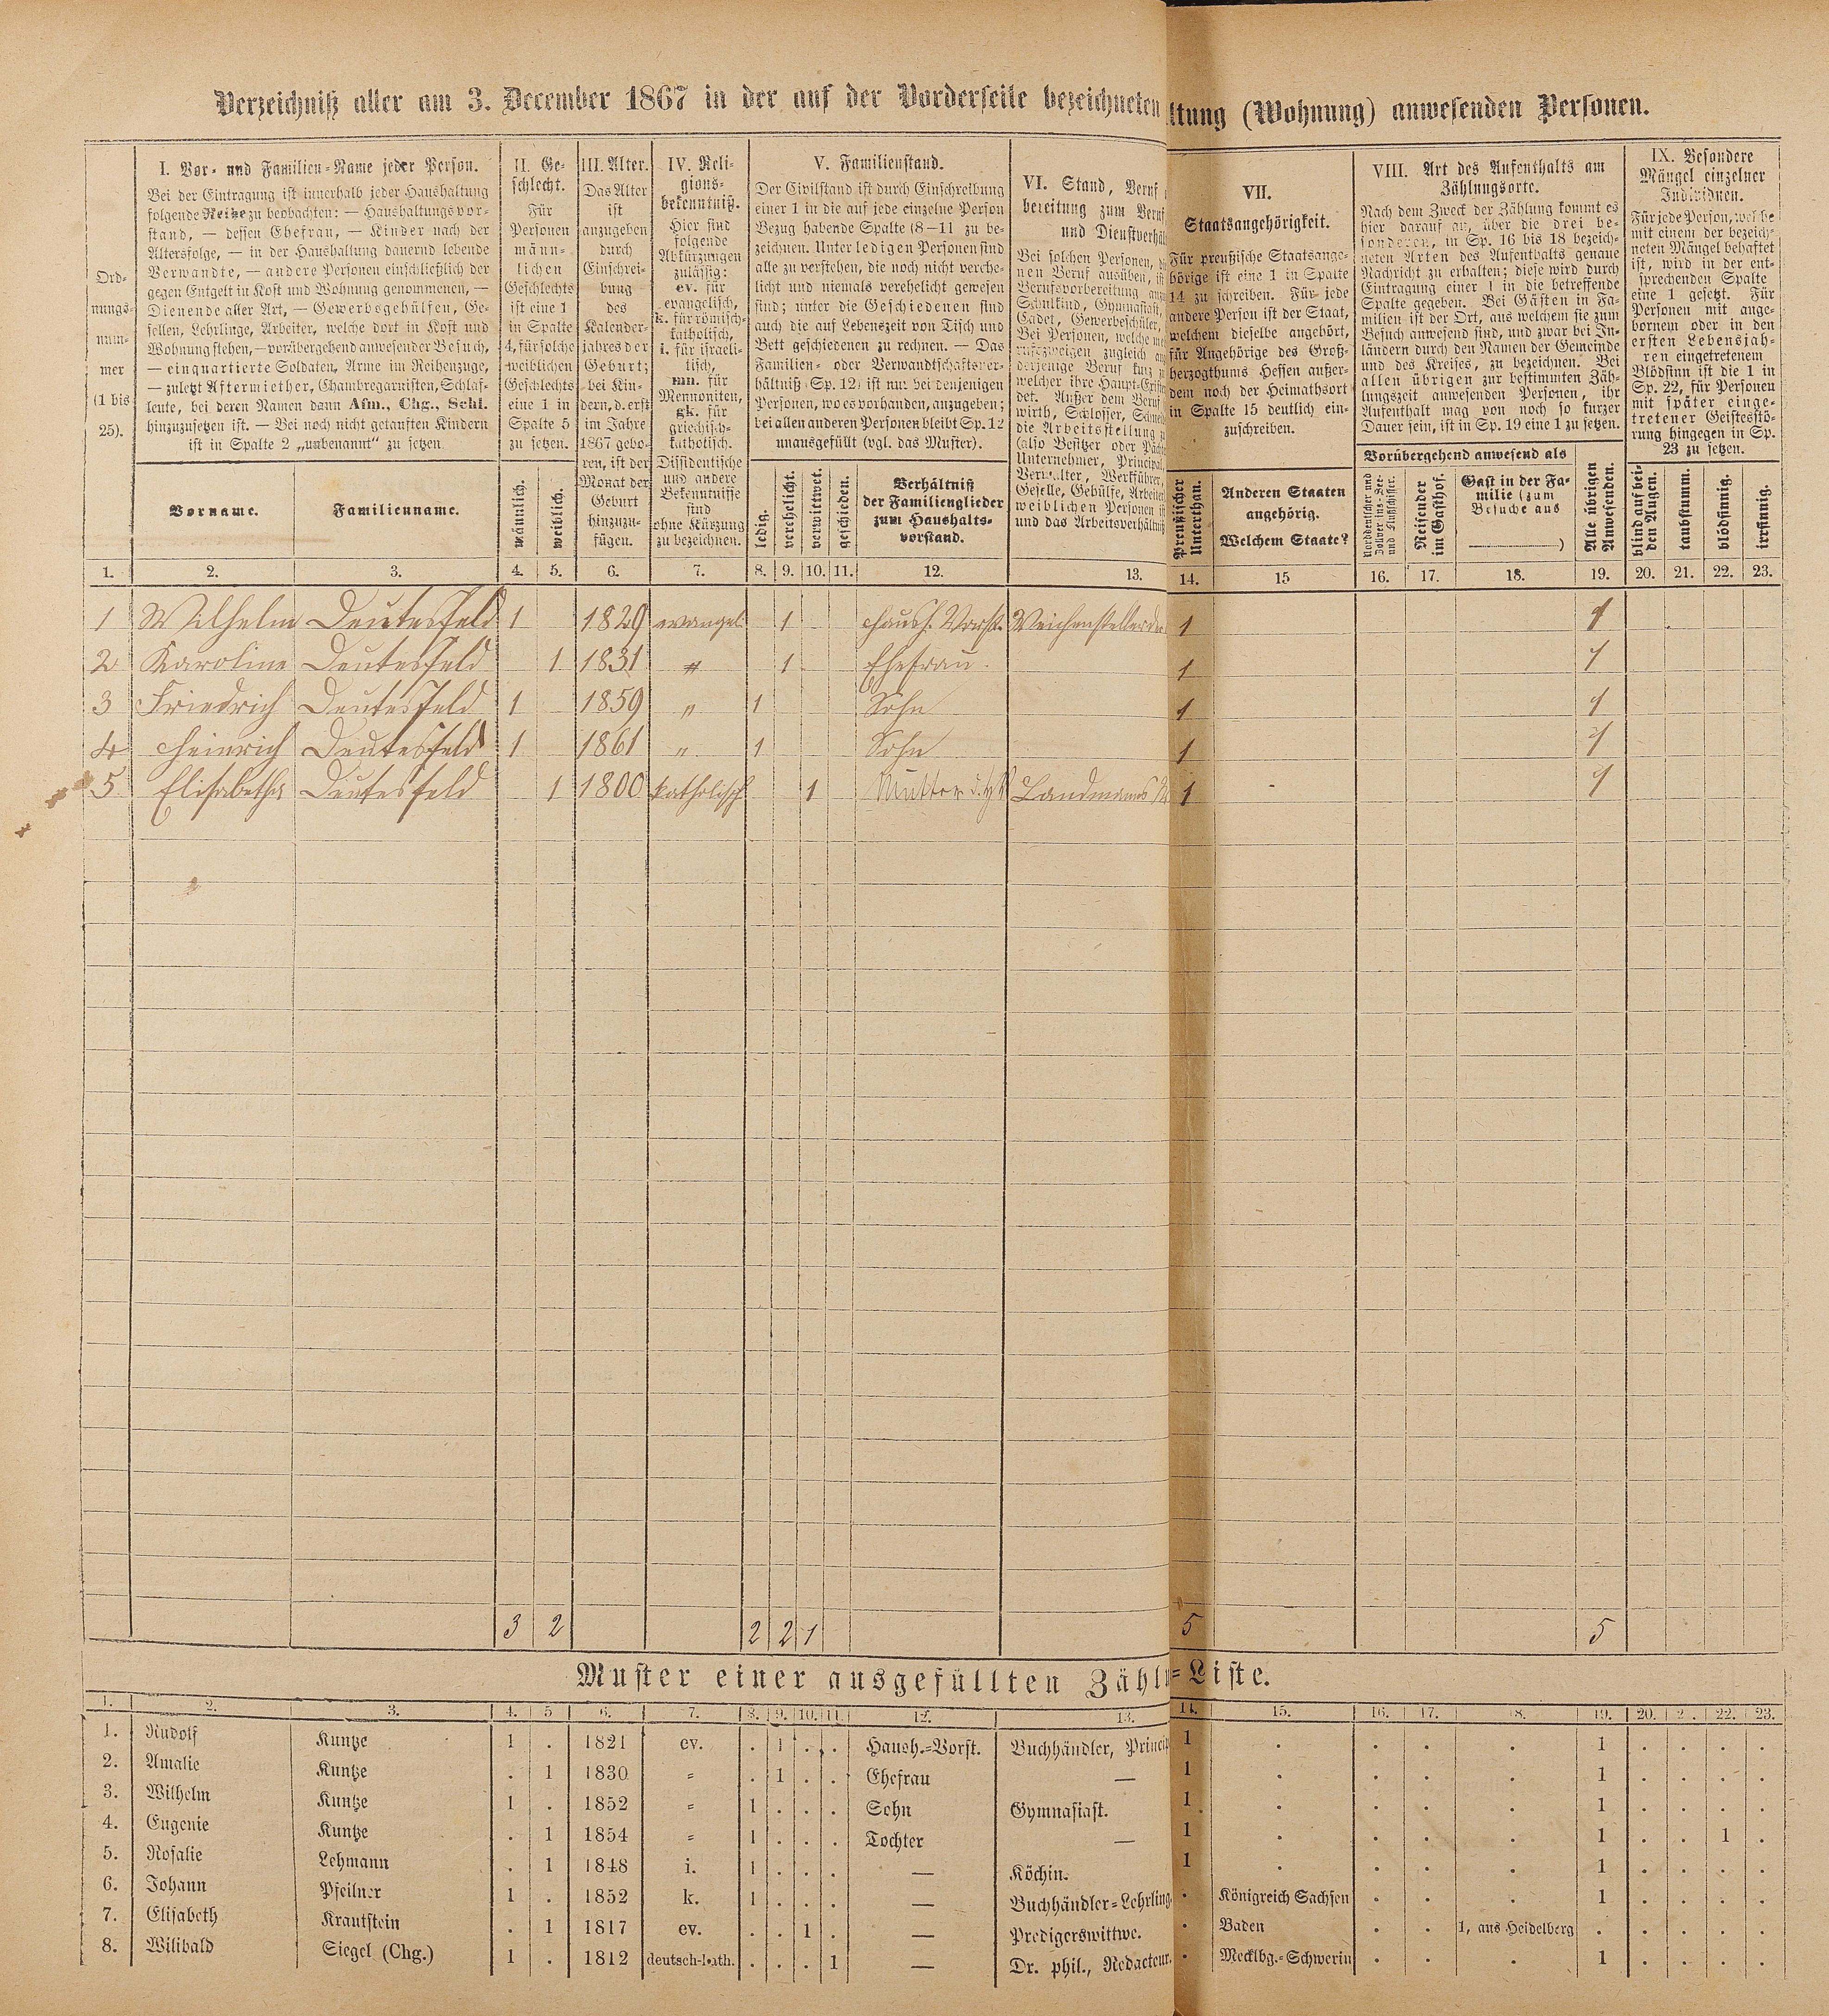 Verzeichniß aller am 3. December 1867 in der auf der Vorderseite bezeichneten ltung (Wohnung) anwesenden Personen.
Ord-
nungs-
num-
mer
(1 bis
25).
I. Vor- und Familien-Name jeder Person.
Bei der Eintragung ist innerhalb jeder Haushaltung
folgende Reihe zu beobachten: — Haushaltungsvor-
stand, — dessen Ehefrau, — Kinder nach der
Altersfolge, — in der Haushaltung dauernd lebende
Verwandte, — andere Personen einschließlich der
gegen Entgelt in Kost und Wohnung genommenen, —
Dienende aller Art, — Gewerbsgehülfen, Ge-
sellen, Lehrlinge, Arbeiter, welche dort in Kost und
Wohnung stehen, — vorübergehend anwesender Besuch,
— einquartierte Soldaten, Arme im Reihenzuge,
— zuletzt Aftermiether, Chambregarnisten, Schlaf-
leute, bei deren Namen dann Afm., Chg., Schl.
hinzuzusetzen ist. — Bei noch nicht getauften Kindern
ist in Spalte 2 „unbenannt“ zu setzen.
Vorname.
Familienname.
II. Ge-
schlecht.
Für
Personen
männ-
lichen
Geschlechts
ist eine 1
in Spalte
4, für solche
weiblichen
Geschlechts
eine 1 in
Spalte 5
zu setzen.
männlich.
weiblich.
III. Alter.
Das Alter
ist
anzugeben
durch
Einschrei-
bung
des
Kalender-
jahres der
Geburt;
bei Kin-
dern, d. erst
im Jahre
1867 gebo-
ren, ist der
Monat der
Geburt
hinzuzu-
fügen.
IV. Reli-
gions-
bekenntniß.
Hier sind
folgende
Abkürzungen
zulässig:
ev. für
evangelisch,
k. für römisch-
katholisch,
i. für israeli-
tisch,
mn. für
Mennoniten,
gk. für
griechisch-
katholisch.
Dissidentische
und andere
Bekenntnisse
sind
ohne Kürzung
zu bezeichnen.
V. Familienstand.
Der Civilstand ist durch Einschreibung
einer 1 in die auf jede einzelne Person
Bezug habende Spalte (8—11 zu be-
zeichnen. Unter ledigen Personen sind
alle zu verstehen, die noch nicht verehe-
licht und niemals verehelicht gewesen
sind; unter die Geschiedenen sind
auch die auf Lebenszeit von Tisch und
Bett geschiedenen zu rechnen. — Das
Familien- oder Verwandtschaftsver-
hältniß (Sp. 12) ist nur bei denjenigen
Personen, wo es vorhanden, anzugeben;
bei allen anderen Personen bleibt Sp. 12
unausgefüllt (vgl. das Muster).
ledig.
verehelicht.
verwittwet.
geschieden.
Verhältniß
der Familienglieder
zum Haushalts-
vorstand.
VI. Stand, Beruf
bereitung zum Beruf
und Dienstverhäl
Bei solchen Personen,
nen Beruf ausüben,
Berufsvorbereitung
Schulkind, Gymnasiast,
Cadet, Gewerbeschüler,
Bei Personen, welche
rufszweigen zugleich
derjenige Beruf kurz
welcher ihre Haupt-Exi
det. Außer dem Beruf
wirth, Schlosser,
die Arbeitsstellung
(also Besitzer oder
Unternehmer, Principal,
Verwalter, Werkführer,
Geselle, Gehülfe, Arbeiter
weiblichen Personen
und das Arbeitsverhältniß
VII.
Staatsangehörigkeit.
Für preußische Staatsange-
hörige ist eine 1 in Spalte
14 zu schreiben. Für jede
andere Person ist der Staat,
welchem dieselbe angehört,
für Angehörige des Groß-
herzogthums Hessen außer-
dem noch der Heimathsort
in Spalte 15 deutlich ein-
zuschreiben.
Preußischer
Unterthan.
Anderen Staaten
angehörig.
Welchem Staate?
VIII. Art des Aufenthalts am
Zählungsorte.
Nach dem Zweck der Zählung kommt es
hier darauf an, über die drei be-
sonderen, in Sp. 16 bis 18 bezeich-
neten Arten des Aufenthalts genaue
Nachricht zu erhalten; diese wird durch
Eintragung einer 1 in die betreffende
Spalte gegeben. Bei Gästen in Fa-
milien ist der Ort, aus welchem sie zum
Besuch anwesend sind, und zwar bei In-
ländern durch den Namen der Gemeinde
und des Kreises, zu bezeichnen. Bei
allen übrigen zur bestimmten Zäh-
lungszeit anwesenden Personen, ihr
Aufenthalt mag von noch so kurzer
Dauer sein, ist in Sp. 19 eine 1 zu setzen.
Vorübergehend anwesend als
Norddeutscher und
Zollvereins-See-
und Flußschiffer.
Reisender
im Gasthof.
Gast in der Fa-
milie (zum
Besuche aus
)
Alle übrigen
Anwesenden.
IX. Besondere
Mängel einzelner
Individuen.
Für jede Person, welche
mit einem der bezeich-
neten Mängel behaftet
ist, wird in der ent-
sprechenden Spalte
eine 1 gesetzt. Für
Personen mit ange-
bornem oder in den
ersten Lebensjah-
ren eingetretenem
Blödsinn ist die 1 in
Sp. 22, für Personen
mit später einge-
tretener Geistesstö-
rung hingegen in Sp.
23 zu setzen.
blind auf bei-
den Augen.
taubstumm.
blödsinnig.
irrsinnig.
1. 2. 3. 4. 5. 6. 7. 8. 9. 10. 11. 12. 13. 14. 15 16. 17. 18. 19. 20. 21. 22. 23.
1 Wilhelm Deutesfeld 1 1829 evangel. 1 Haush. Vorst. Weichensteller 1 1
2 Karoline Deutesfeld 1 1831 " 1 Ehefrau. 1 1
3 Friedrich Deutesfeld 1 1859 " 1 Sohn 1 1
4 Heinrich Deutesfeld 1 1861 " 1 Sohn 1 1
5 Elisabetha Deutesfeld 1 1800 katholisch 1 Mutter Landmanns 1 1
3 2 2 2 1 5 5
Muster einer ausgefüllten Zähl-Liste.
1. 2. 3. 4. 5 6. 7. 8. 9. 10. 11. 12. 13. 14. 15. 16. 17. 18. 19. 20. 2. 22. 23.
1. Rudolf Kuntze 1 . 1821 ev. . 1 . . Haush.-Vorst. Buchhändler, Princip 1 . . . . 1 . . . .
2. Amalie Kuntze . 1 1830 = . 1 . . Ehefrau — 1 . . . . 1 . . . .
3. Wilhelm Kuntze 1 . 1852 = 1 . . . Sohn Gymnasiast. 1 . . . . 1 . . . .
4. Eugenie Kuntze . 1 1854 = 1 . . . Tochter — 1 . . . . 1 . . 1 .
5. Rosalie Lehmann . 1 1848 i. 1 . . . — Köchin. 1 . . . . 1 . . . .
6. Johann Pfeilner 1 . 1852 k. 1 . . . — Buchhändler-Lehrling. . Königreich Sachsen . . . 1 . . . .
7. Elisabeth Krautstein . 1 1817 ev. . . 1 . — Predigerswittwe. . Baden . . 1, aus Heidelberg . . . . .
8. Wilibald Siegel (Chg.) 1 . 1812 deutsch-kath. . . . 1 — Dr. phil., Redacteur. . Mecklbg.-Schwerin . . . 1 . . . .